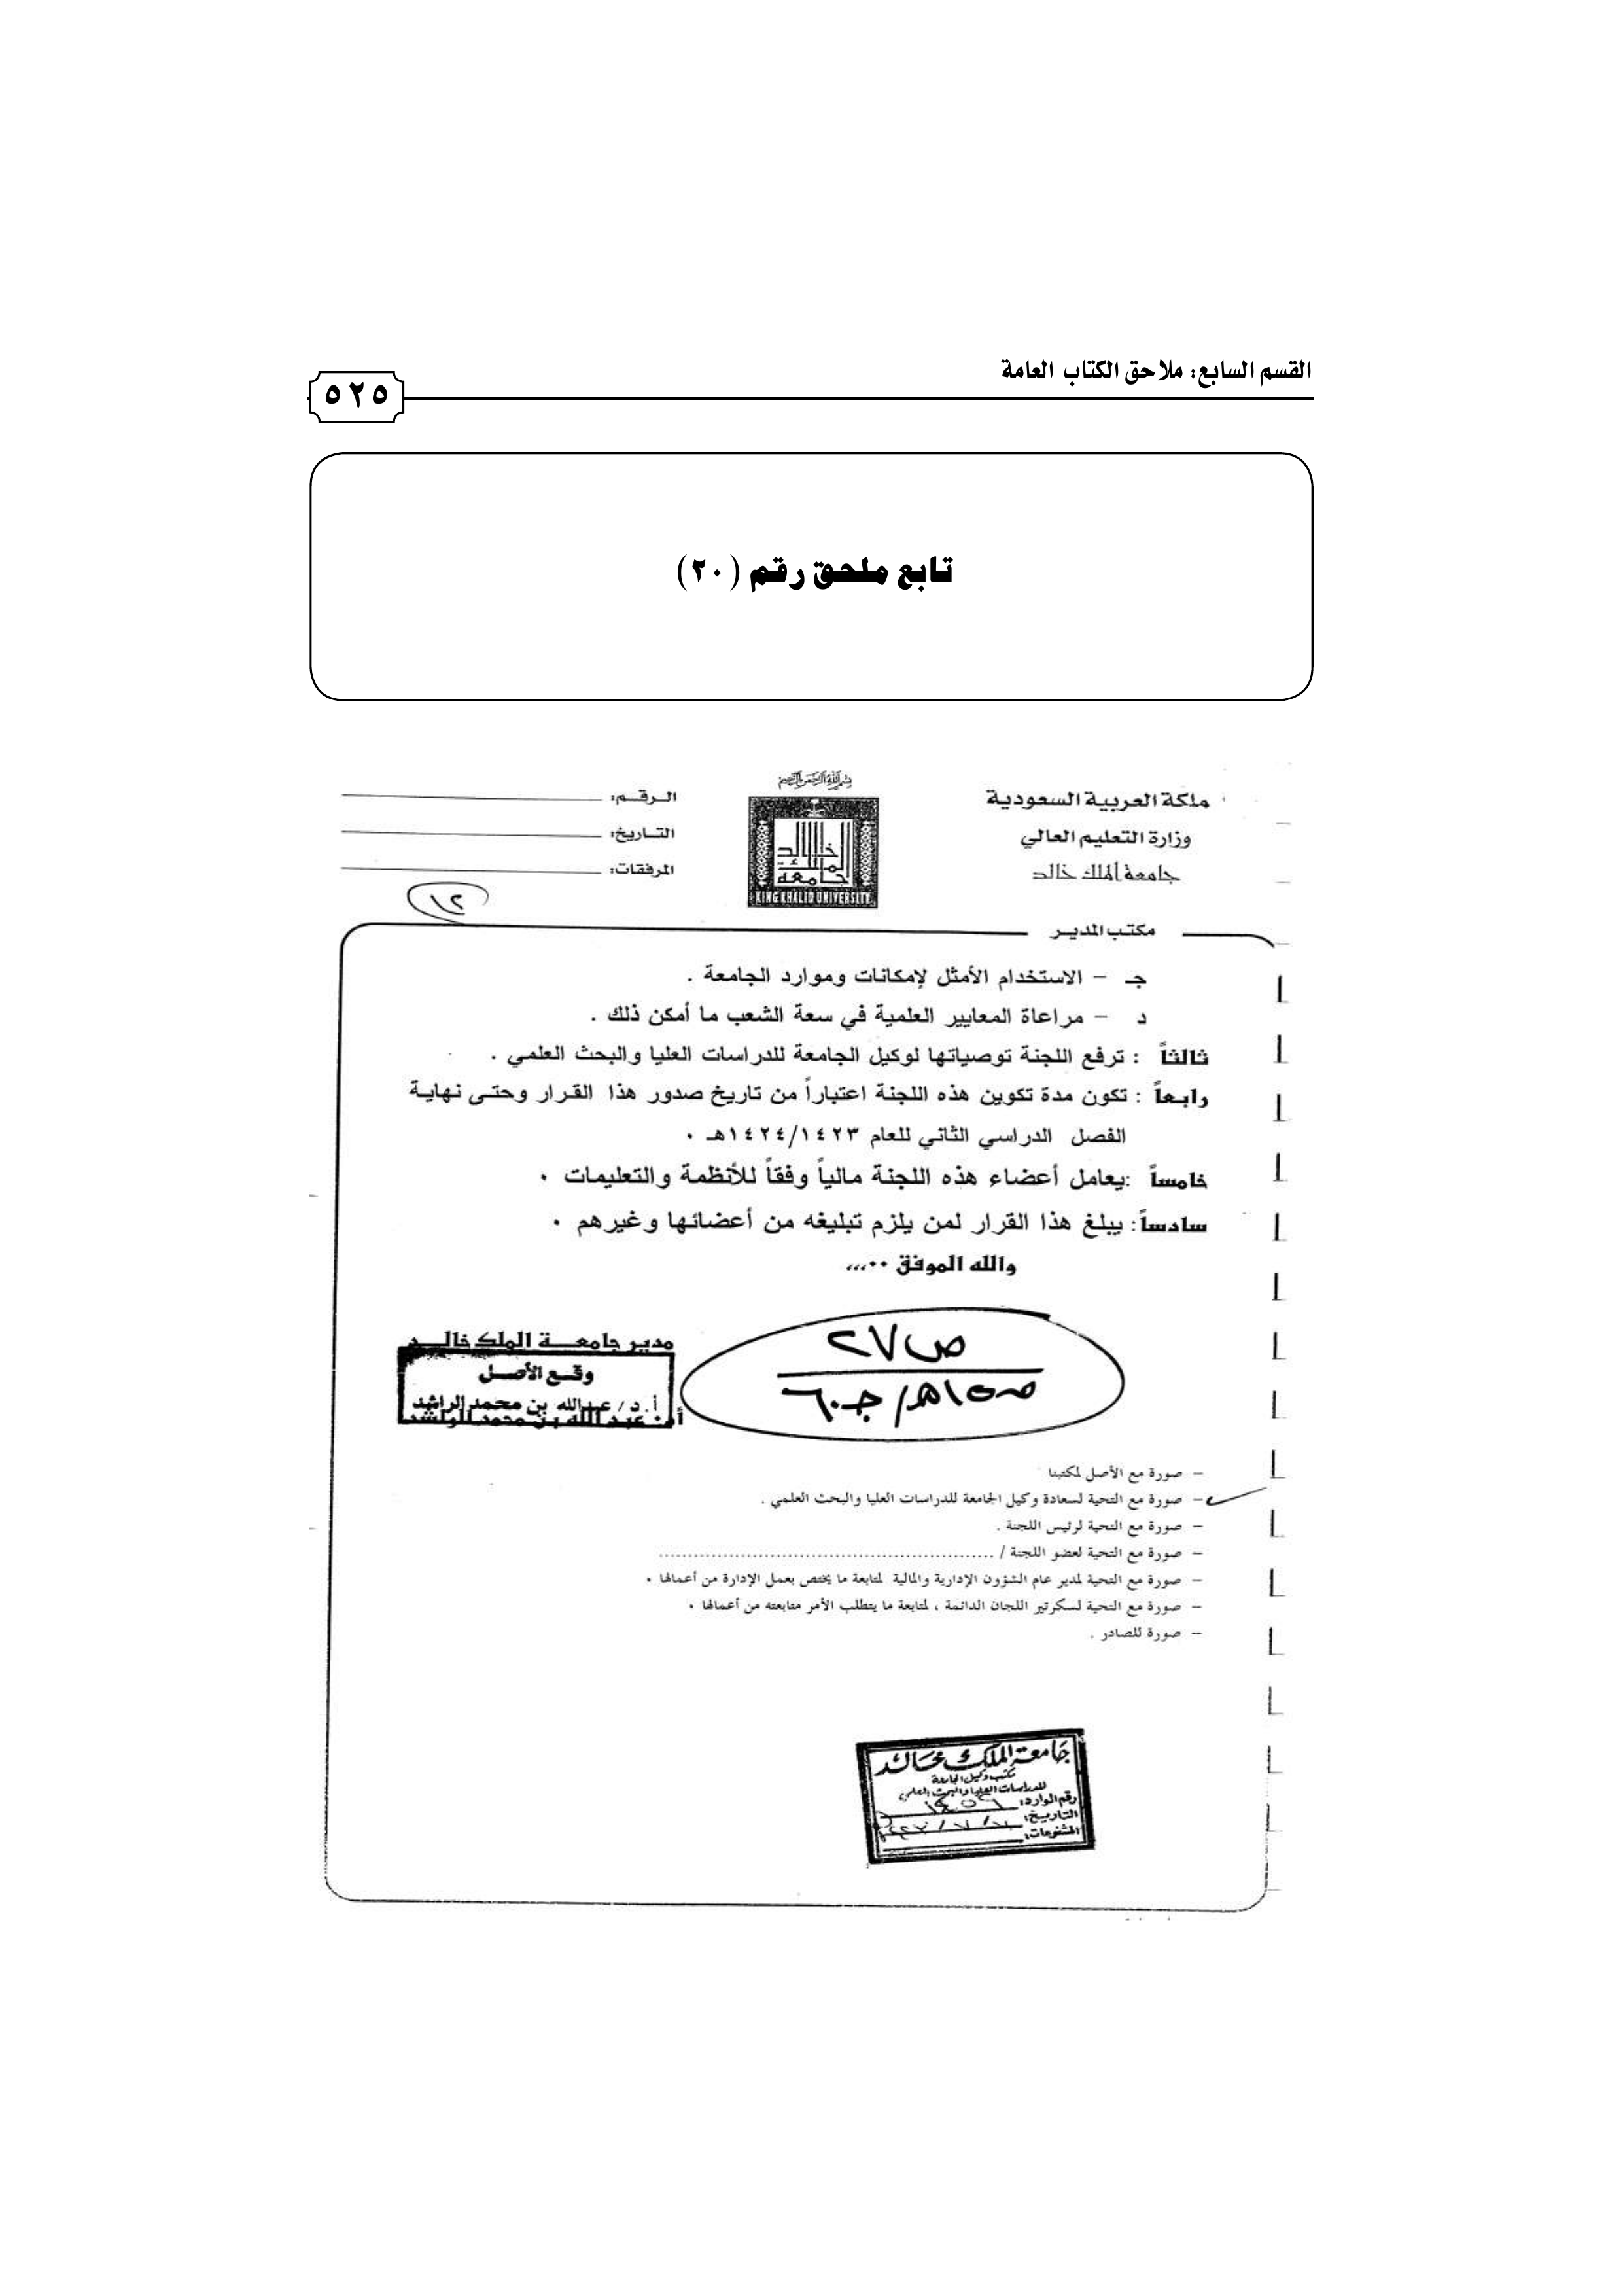 القسم السابع: ملاحق الكتاب العامة
٥٢٥
تابع ملحق رقم (٢٠)
بسم الله الرحمن الرحيم
ملكة العربية السعودية
وزارة التعليم العالي
جامعة الملك خالد
مكتب المدير
جامعة الملك خالد
KING KHALID UNIVERSITY
الرقم:
التاريخ:
المرفقات:
جـ – الاستخدام الأمثل لإمكانات وموارد الجامعة .
د – مراعاة المعايير العلمية في سعة الشعب ما أمكن ذلك .
ثالثاً : ترفع اللجنة توصياتها لوكيل الجامعة للدراسات العليا والبحث العلمي .
رابعاً : تكون مدة تكوين هذه اللجنة اعتباراً من تاريخ صدور هذا القرار وحتى نهاية
الفصل الدراسي الثاني للعام ١٤٢٤/١٤٢٣هـ ٠
خامساً :يعامل أعضاء هذه اللجنة مالياً وفقاً للأنظمة والتعليمات ٠
سادساً: يبلغ هذا القرار لمن يلزم تبليغه من أعضائها وغيرهم ٠
والله الموفق ٠٠،،،
مدير جامعة الملك خالد
وقع الأصل
أ.د / عبدالله بن محمد الراشد
أ.د. عبد الله بن محمد الراشد
ص ٢٧
– صورة مع الأصل لمكتبنا
– صورة مع التحية لسعادة وكيل الجامعة للدراسات العليا والبحث العلمي .
– صورة مع التحية لرئيس اللجنة .
– صورة مع التحية لعضو اللجنة / ..........................................................
– صورة مع التحية لمدير عام الشؤون الإدارية والمالية لمتابعة ما يختص بعمل الإدارة من أعمالها ٠
– صورة مع التحية لسكرتير اللجان الدائمة ، لمتابعة ما يتطلب الأمر متابعته من أعمالها ٠
– صورة للصادر .
جامعة الملك خالد
مكتب وكيل الجامعة
للدراسات العليا والبحث العلمي
رقم الوارد:
التاريخ:
المشفوعات: